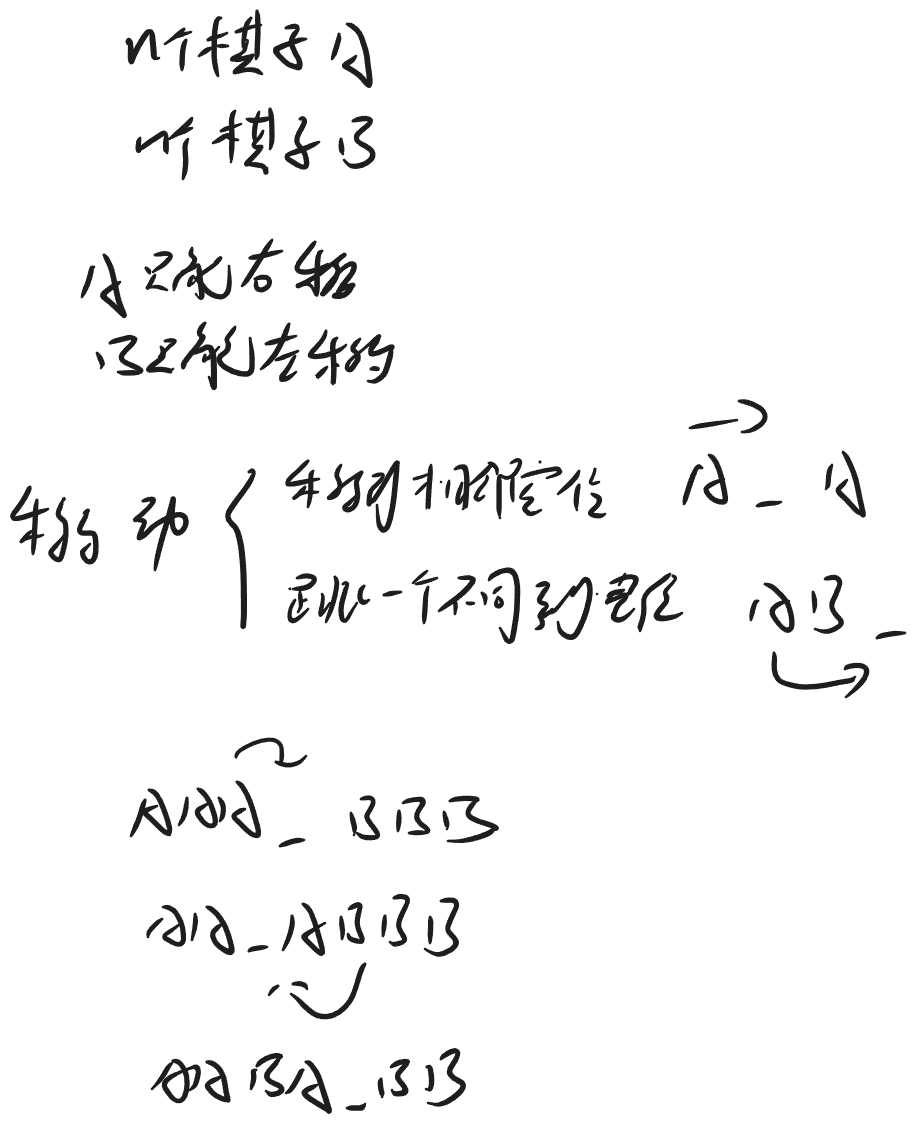 n个棋子A
n个棋子B
A只能右移
B只能左移
移动 { 移到相邻空位 A _ A
跳一个不同到空位 AB _
AAA _ BBB
AA _ ABBB
AABA _ BB